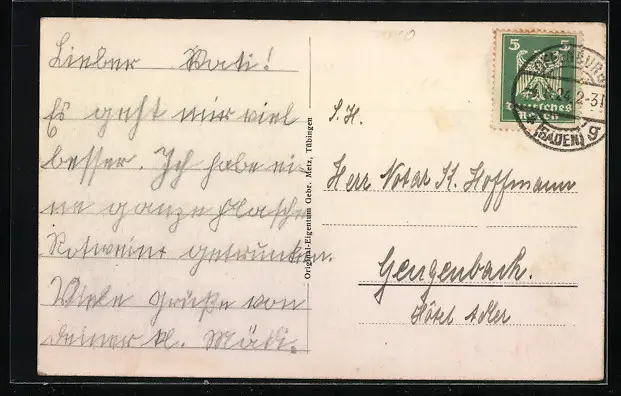 Lieber Vati!
Es geht mir viel
besser. Ich habe ei-
ne ganze Flasche
Rotweine getrunken.
Viele Grüße von
deiner kl. Mädi.
Original-Eigentum Gebr. Metz, Tübingen
5 5
Deutsches
Reich
OFFENBURG
(BADEN) g
S. H.
Herr Notar K. Hoffmann
Gengenbach.
Hotel Adler